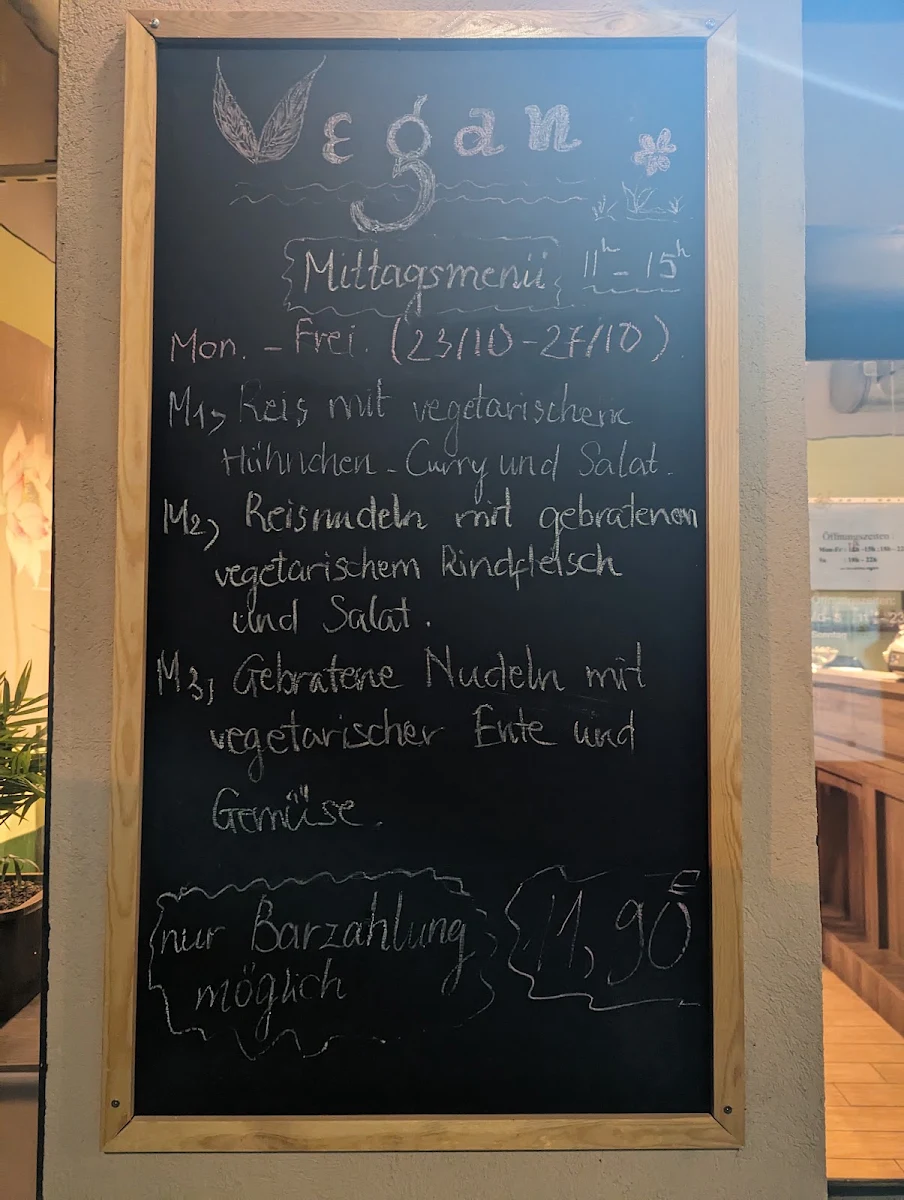 Vegan
Mittagsmenü 11h - 15h
Mon. - Frei. (23/10 - 27/10)
M1, Reis mit vegetarischem
Hühnchen - Curry und Salat.
M2, Reisnudeln mit gebratenem
vegetarischem Rindfleisch
und Salat.
M3, Gebratene Nudeln mit
vegetarischer Ente und
Gemüse.
nur Barzahlung
möglich
11,90
Öffnungszeiten